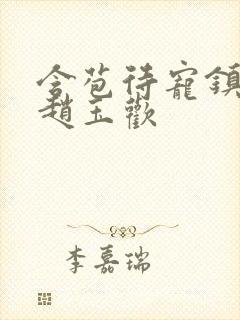 含苞待寵鎮
趙玉歡
李嘉瑞